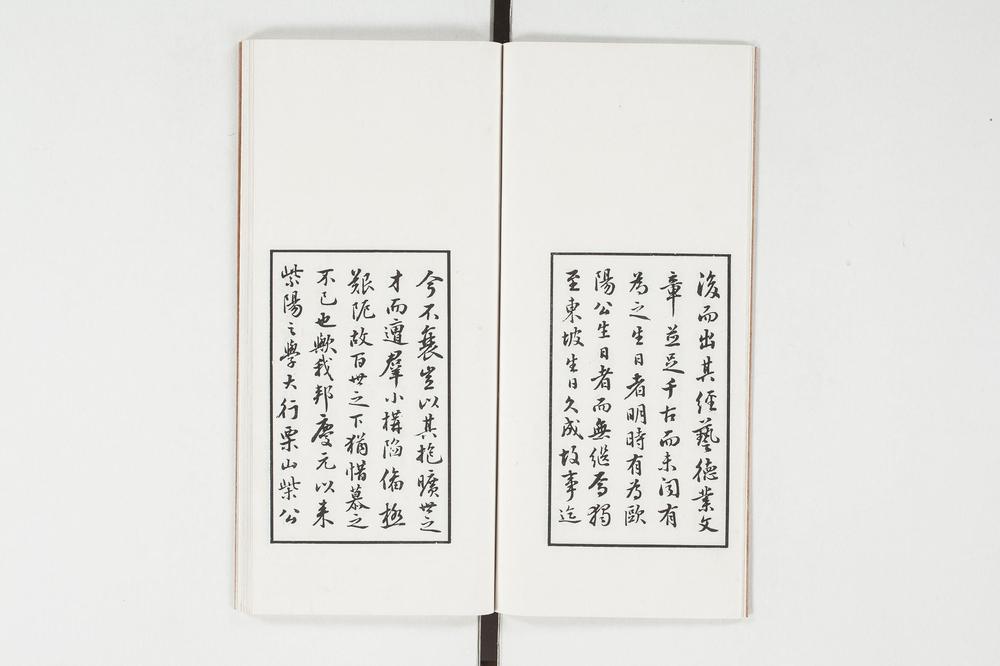 後而出其經藝德業文
章並足千古而未聞有
為之生日者明時有為歐
陽公生日者而無繼焉獨
至東坡生日久成故事迄
今不衰豈以其抱曠世之
才而遭羣小構陷備極
艱阨故百世之下猶惜慕之
不已也歟我邦慶元以来
紫陽之學大行栗山柴公